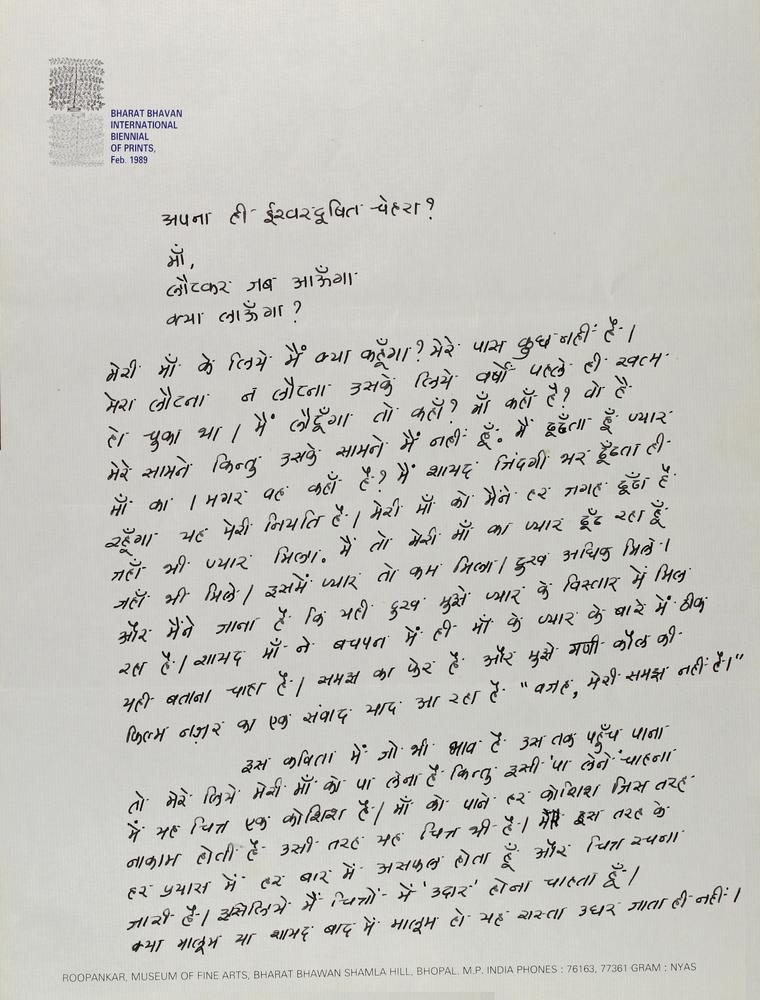 BHARAT BHAVAN
INTERNATIONAL
BIENNIAL
OF PRINTS,
Feb. 1989
अपना ही ईश्वरदूषित चेहरा?
माँ,
लौटकर जब आऊँगा
क्या लाऊँगा?
मेरी माँ के लिये मैं क्या कहूँगा? मेरे पास कुछ नहीं है।
मेरा लौटना न लौटना उसके लिये वर्षों पहले ही खत्म
हो चुका था। मैं लौटूँगा तो कहाँ? माँ कहाँ है? वो है
मेरे सामने किन्तु उसके सामने मैं नहीं हूँ. मैं ढूढँता हूँ प्यार
माँ का । मगर वह कहाँ है? मैं शायद जिंदगी भर ढूँढता ही
रहूँगा यह मेरी नियति है। मेरी माँ को मैंने हर जगह ढूँढा है
जहाँ भी प्यार मिला. मैं तो मेरी माँ का प्यार ढूँढ रहा हूँ
जहाँ भी मिले। इसमें प्यार तो कम मिला। दुख अधिक मिले।
और मैंने जाना है कि यही दुख मुझे प्यार के विस्तार में मिल
रहा है। शायद माँ ने बचपन में ही माँ के प्यार के बारे में ठीक
यही बताना चाहा है। समझ का फेर है और मुझे मणी कौल की
फिल्म नज़र का एक संवाद याद आ रहा है "वजह, मेरी समझ नहीं है।"
इस कविता में जो भी भाव है उस तक पहुँच पाना
तो मेरे लिये मेरी माँ को पा लेना है किन्तु इसी 'पा लेने' चाहना
में यह चित्र एक कोशिश है। माँ को पाने हर कोशिश जिस तरह
नाकाम होती है उसी तरह यह चित्र भी है। मैं इस तरह के
हर प्रयास में हर बार में असफल होता हूँ और चित्र रचना
जारी है। इसिलिये मैं चित्रों में 'उदार' होना चाहता हूँ।
क्या मालूम या शायद बाद में मालूम हो यह रास्ता उधर जाता ही नहीं।
ROOPANKAR, MUSEUM OF FINE ARTS, BHARAT BHAWAN SHAMLA HILL, BHOPAL. M.P. INDIA PHONES : 76163, 77361 GRAM : NYAS